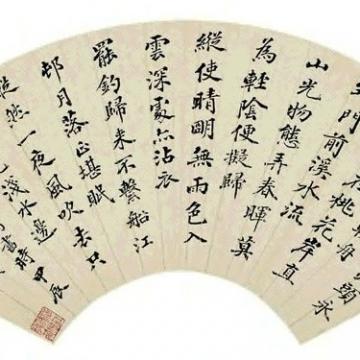 頭永
桃花岸直
門前溪水流
山光物態弄春暉莫
為輕陰便擬歸
縱使晴明無雨色入
雲深處亦沾衣
罷釣歸來不繫船江
邨月落正堪眠
縱然一夜風吹去只
淺水邊
書時甲辰